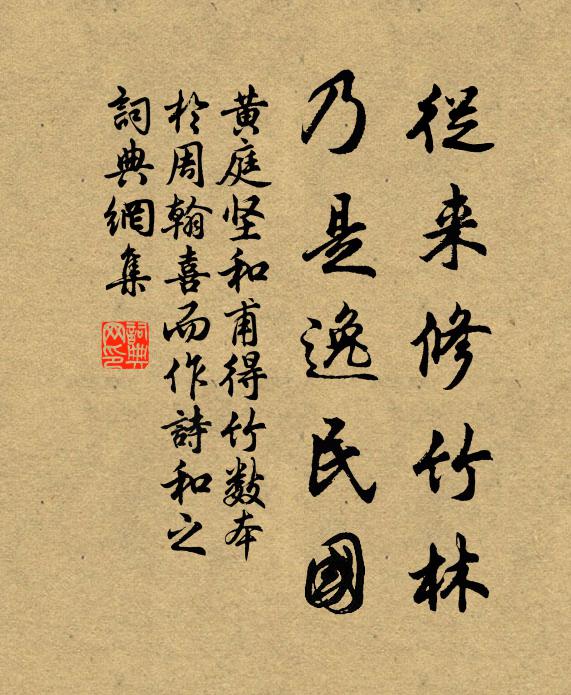 從来修竹林
乃是逸民國
黄庭坚和甫得竹数本
於周翰喜而作詩和之
詞典網集
詞典
网印